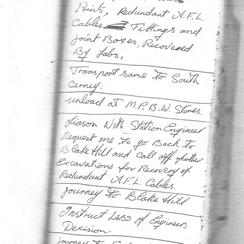 Points, Redundant A.F.L.
Cables Fittings and
Joint Boxes, Recovered
By Labs.
Transport same to South
Cerney.
unload at M.P.B.W Stores.
Liason With Station Engineer
Request me to go Back to
Blake Hill and Call off further
Excavations for Recovery of
Redundant A.F.L. Cables.
Journey to Blake Hill
Instruct LABS of Engineers
Decision
Journey To